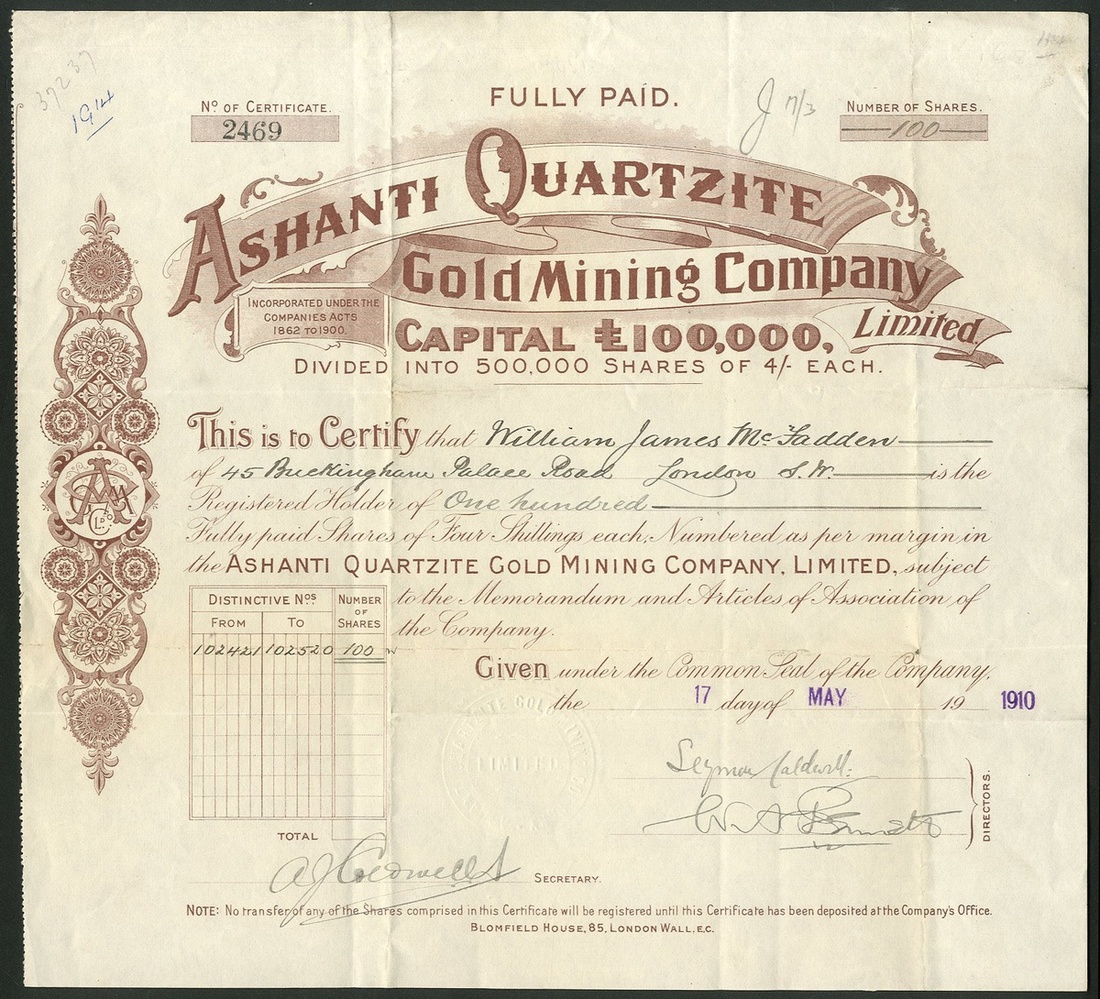 37237
1914
FULLY PAID.
J 17/3
No OF CERTIFICATE.
2469
NUMBER OF SHARES.
100
ASHANTI QUARTZITE
Gold Mining Company
Limited.
INCORPORATED UNDER THE
COMPANIES ACTS
1862 TO 1900.
CAPITAL £100,000,
DIVIDED INTO 500,000 SHARES OF 4/- EACH.
This is to Certify that William James McFadden
of 45 Buckingham Palace Road London S.W. is the
Registered Holder of One hundred
Fully paid Shares of Four Shillings each, Numbered as per margin in
the ASHANTI QUARTZITE GOLD MINING COMPANY, LIMITED, subject
to the Memorandum and Articles of Association of
the Company.
DISTINCTIVE Nos. NUMBER OF SHARES
FROM TO
102421 102520 100
Given under the Common Seal of the Company,
the 17 day of MAY 19 1910
Seymour Caldwell.
DIRECTORS.
TOTAL
SECRETARY.
NOTE: No transfer of any of the Shares comprised in this Certificate will be registered until this Certificate has been deposited at the Company's Office.
BLOMFIELD HOUSE, 85, LONDON WALL, E.C.